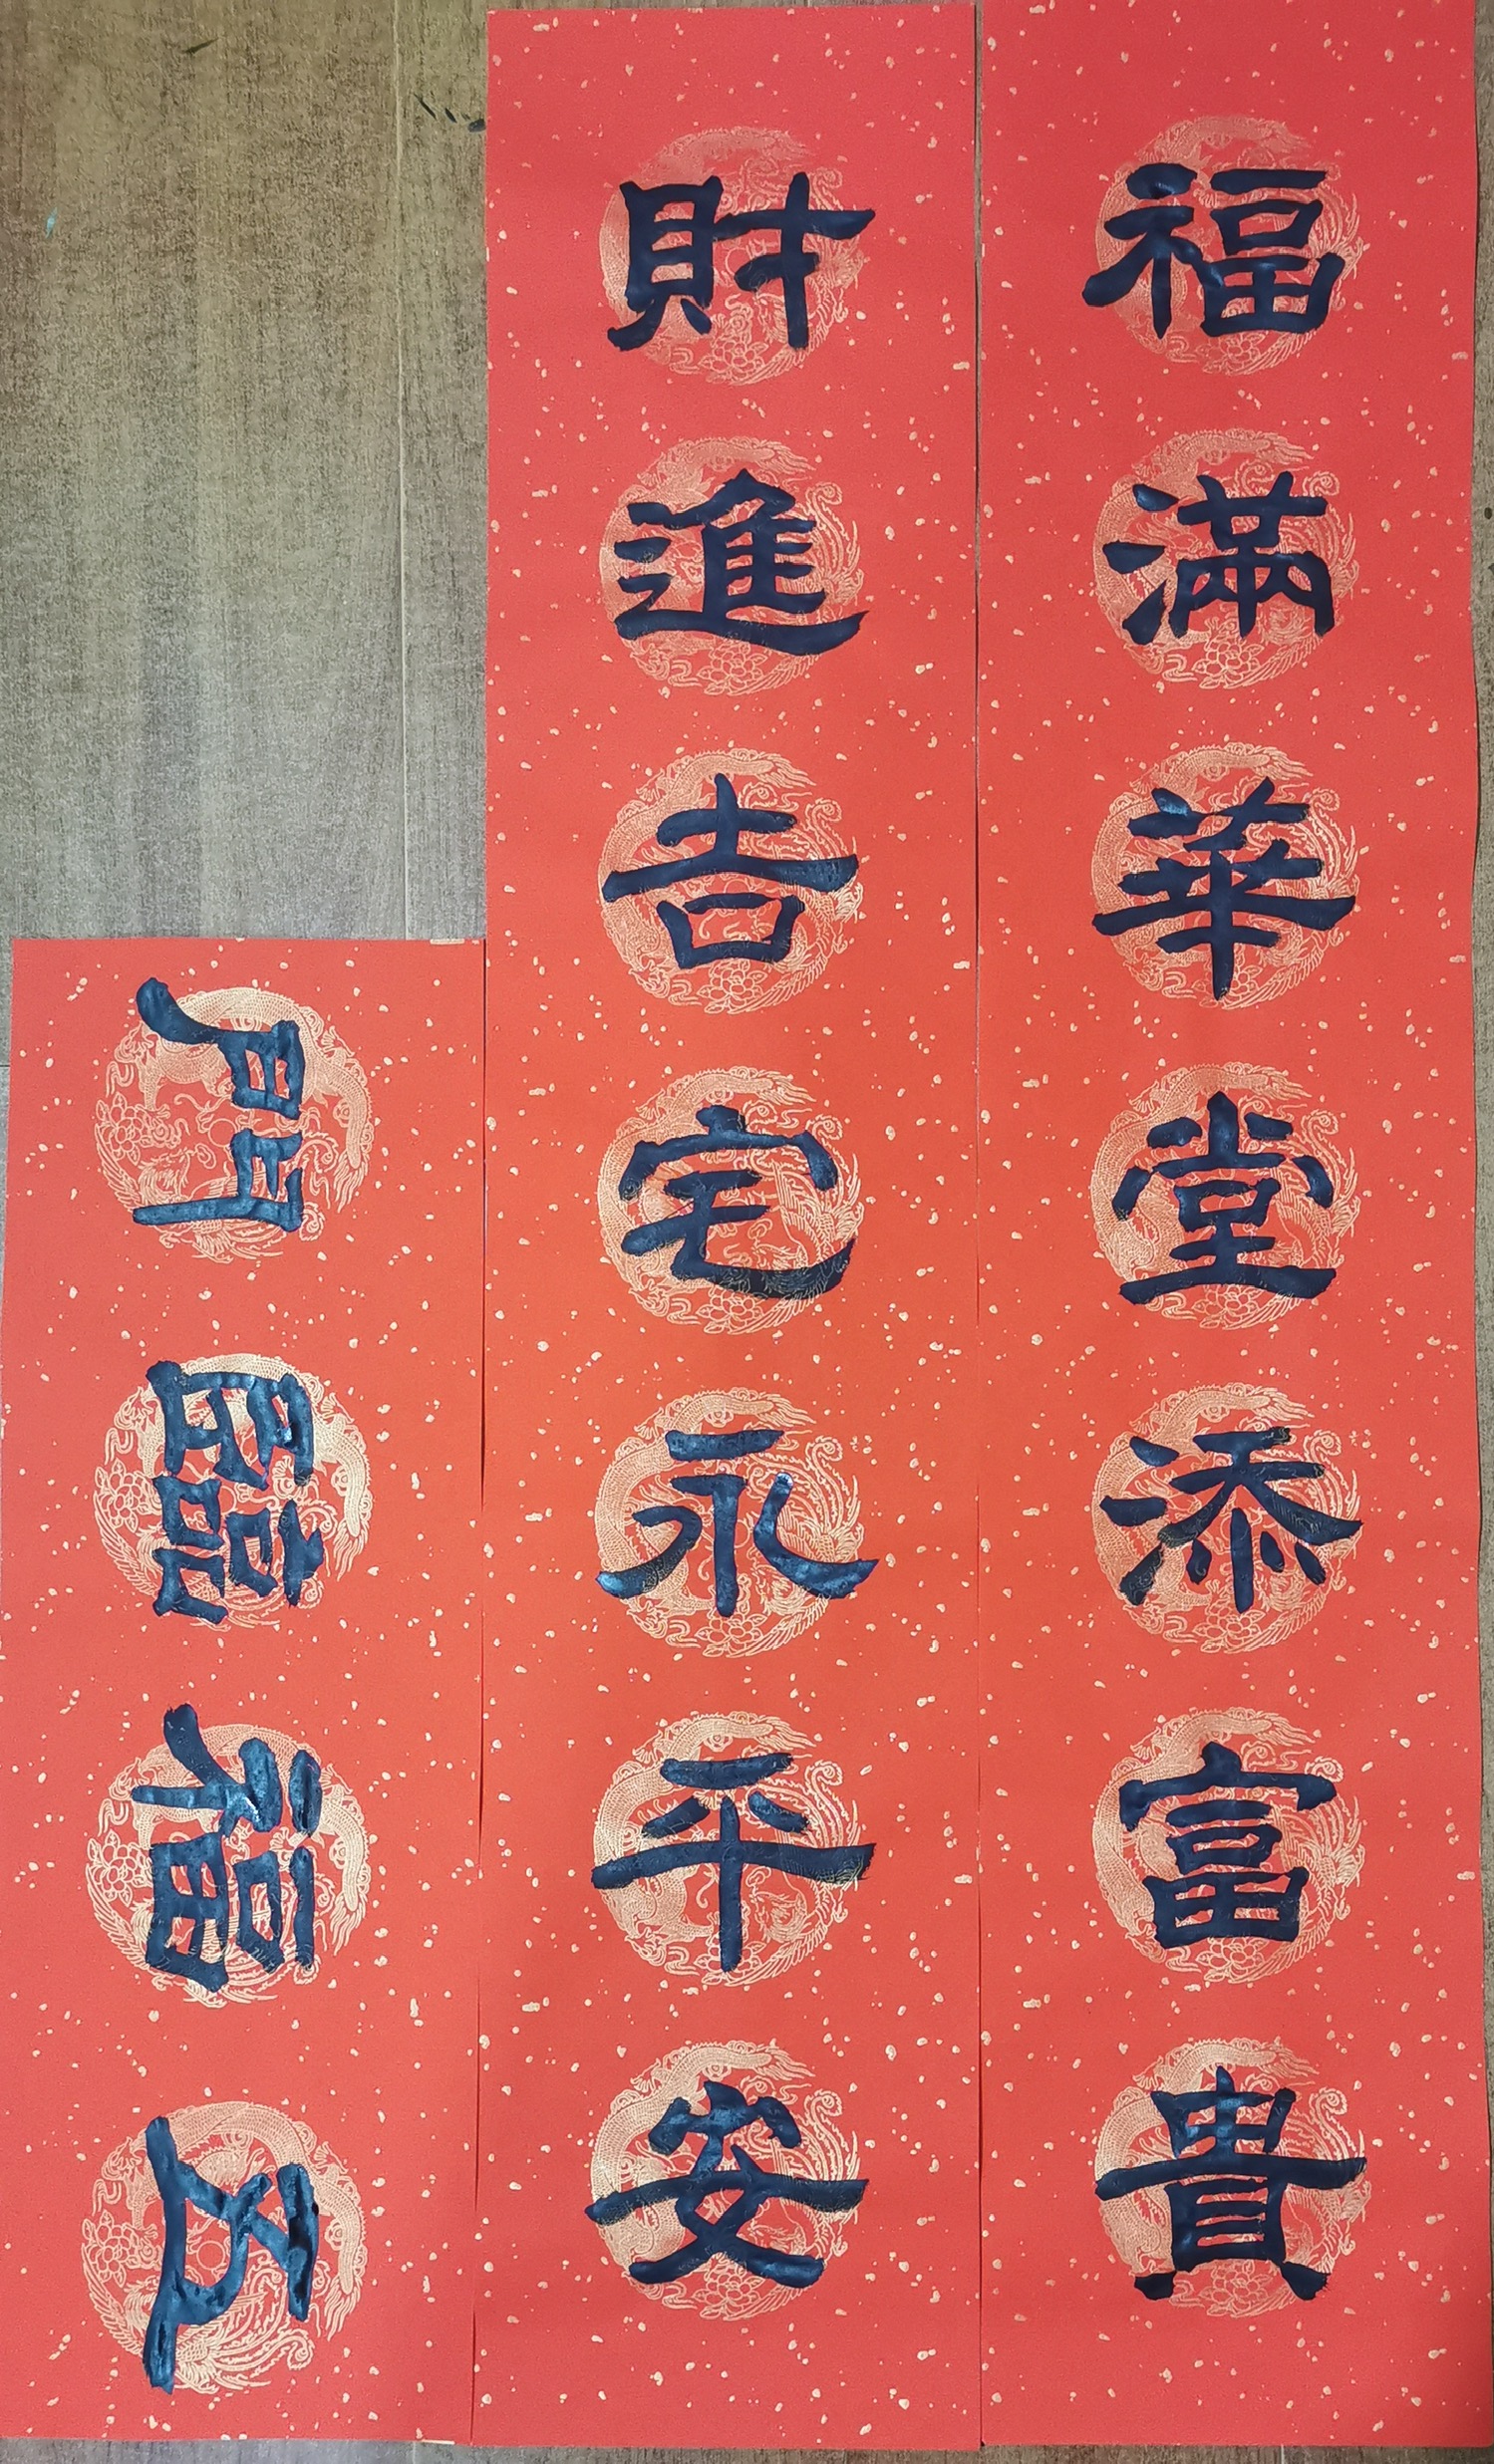 福滿華堂添富貴
財進吉宅永平安
五福臨門